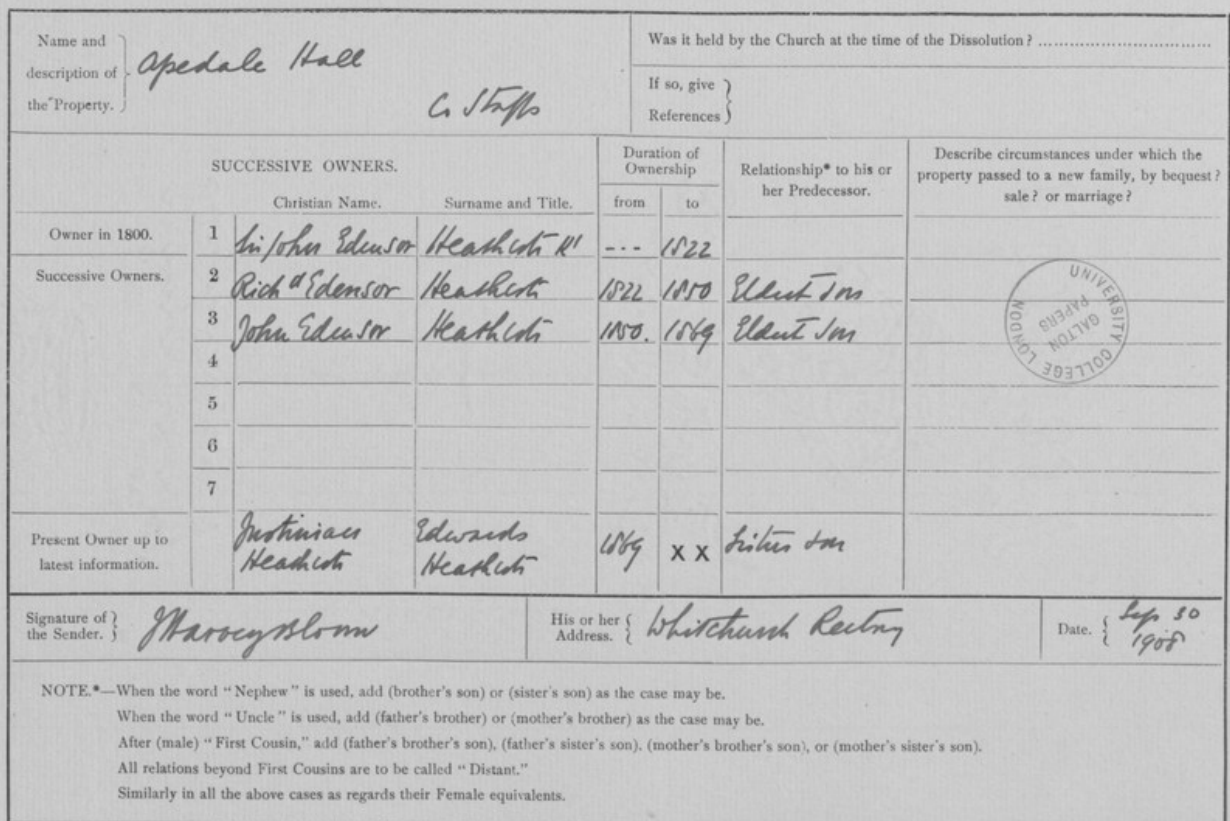 Name and description of the Property. Apedale Hall
Co Staffs
Was it held by the Church at the time of the Dissolution? ..............................
If so, give References
SUCCESSIVE OWNERS.
Christian Name. Surname and Title.
Duration of Ownership
from to
Relationship* to his or her Predecessor.
Describe circumstances under which the property passed to a new family, by bequest? sale? or marriage?
Owner in 1800. 1 Sir John Edensor Heathcote Kt --- 1822
Successive Owners. 2 Richd Edensor Heathcote 1822 1850 Eldest Son
3 John Edensor Heathcote 1850. 1869 Eldest Son
4
5
6
7
Present Owner up to latest information. Justinian Heathcote Edwards Heathcote 1869 X X Sisters son
UNIVERSITY COLLEGE LONDON
GALTON
PAPERS
Signature of the Sender. J Harvey Bloom
His or her Address. Whitchurch Rectory
Date. Sep 30 1908
NOTE.*—When the word "Nephew" is used, add (brother's son) or (sister's son) as the case may be.
When the word "Uncle" is used, add (father's brother) or (mother's brother) as the case may be.
After (male) "First Cousin," add (father's brother's son), (father's sister's son), (mother's brother's son), or (mother's sister's son).
All relations beyond First Cousins are to be called "Distant."
Similarly in all the above cases as regards their Female equivalents.